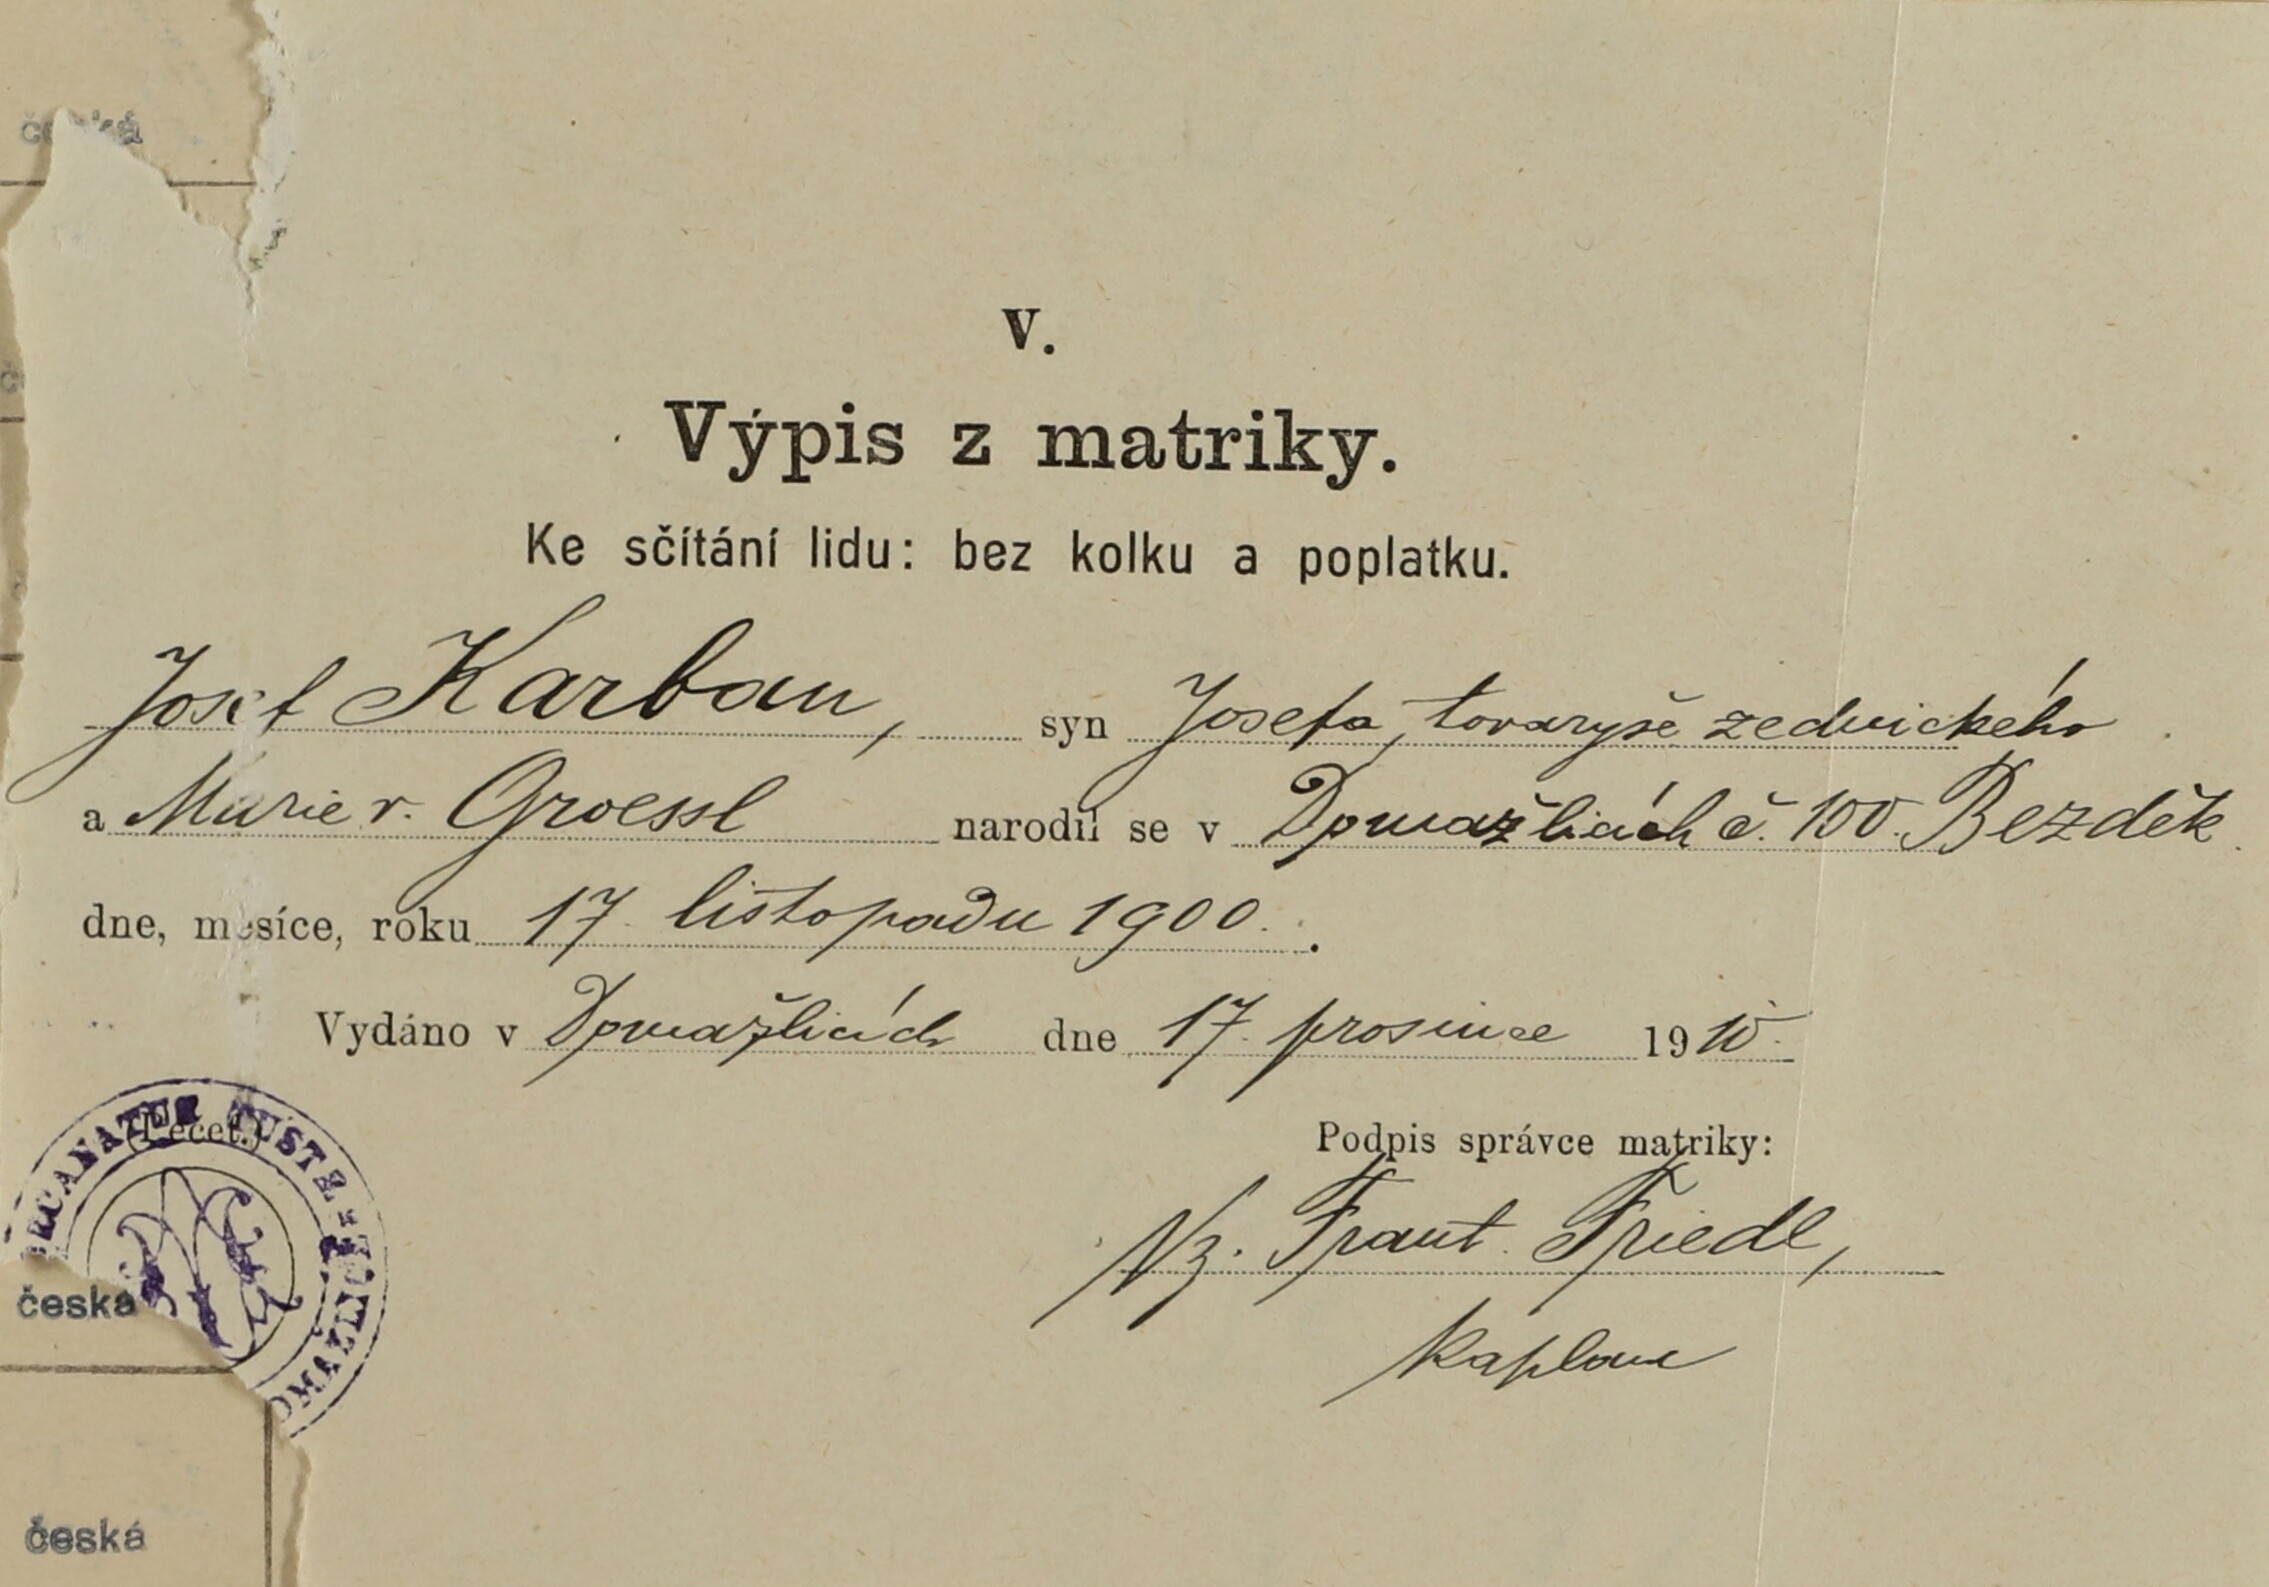 česká
V.
Výpis z matriky.
Ke sčítání lidu: bez kolku a poplatku.
Josef Karban, syn Josefa, tovaryše zednického
a Marie r. Groessl narodil se v Domažlicích č. 100. Bezděk
dne, měsíce, roku 17. listopadu 1900.
Vydáno v Domažlicích dne 17. prosince 1910.
(Pečeť.)
DECANATUS TUSTE
Podpis správce matriky:
Vz. Frant. Friedl,
kaplan
česká
česká